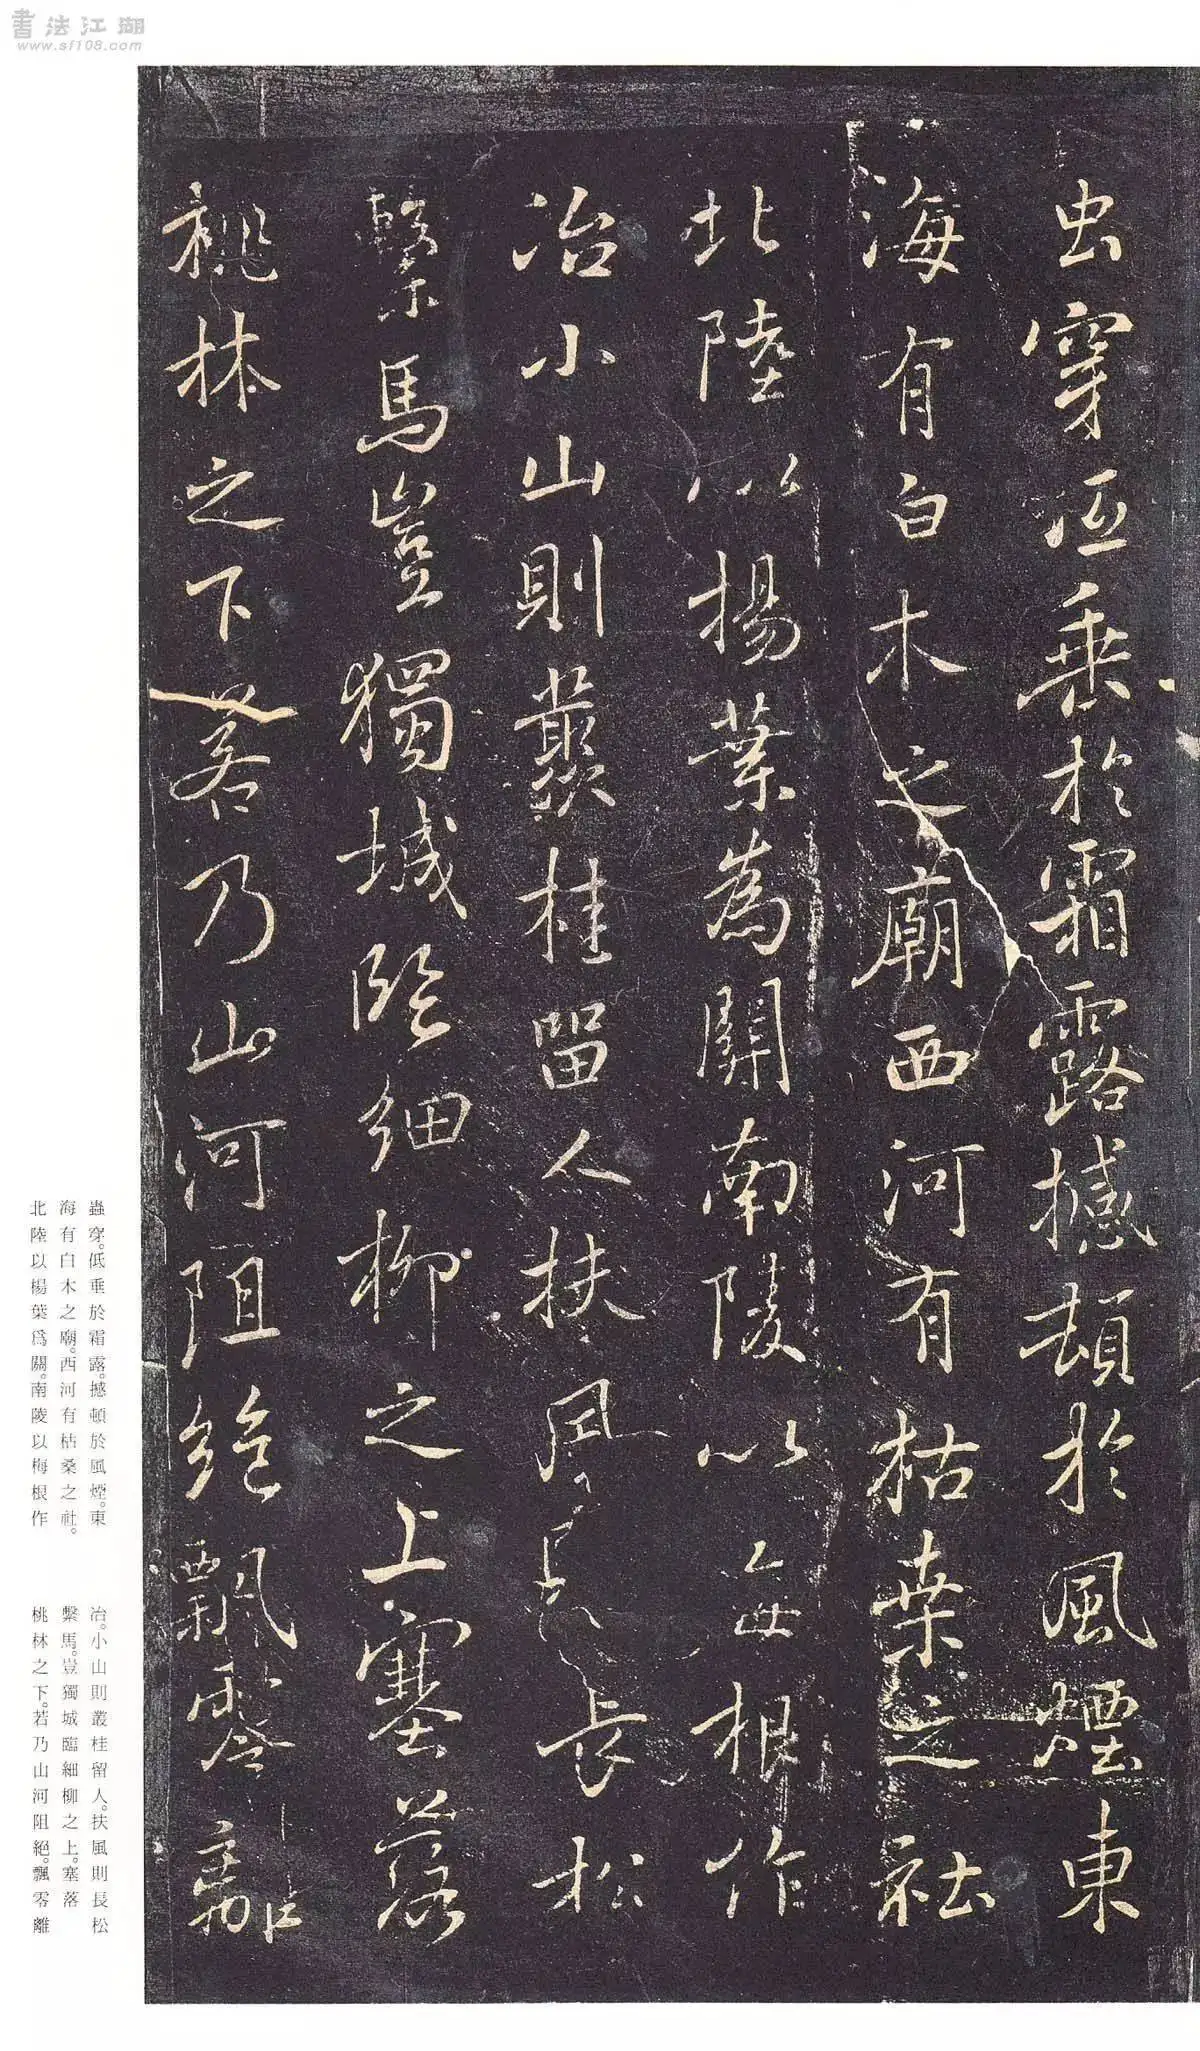 書法江湖
www.sf108.com
虫穿低垂於霜露撼頓於風煙東
海有白木之廟西河有枯桒之社
北陸以楊葉為關南陵以每根作
冶小山則叢桂留人扶風則長松
繫馬豈獨城臨細柳之上塞落
桃林之下若乃山河阻絕飄零離
蟲穿。低垂於霜露。撼頓於風煙。東
海有白木之廟。西河有枯桑之社。
北陸以楊葉爲關。南陵以梅根作
冶。小山則叢桂留人。扶風則長松
繫馬。豈獨城臨細柳之上。塞落
桃林之下。若乃山河阻絕。飄零離